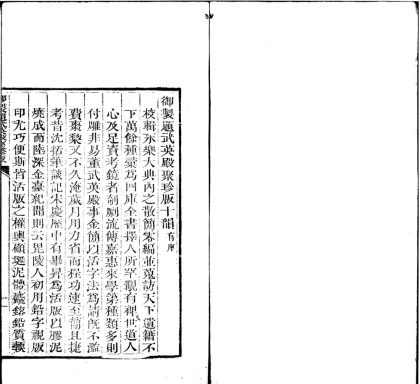 御製題武英殿聚珍版十韻 有序
校輯永樂大典內之散簡零編並蒐訪天下遺籍不
下萬餘種彙為四庫全書擇人所罕覯有裨世道人
心及足資考鏡者剞劂流傳嘉惠來學第種類多則
付雕非易董武英殿事金簡以活字法為請既不濫
費棗棃又不久淹歲月用力省而程功速至簡且捷
考昔沈括筆談記宋慶歷中有畢昇為活版以膠泥
燒成而陸深金臺紀聞則云毘陵人初用鉛字視版
印尤巧便斯皆活版之權輿顧埏泥體麤鎔鉛質輭